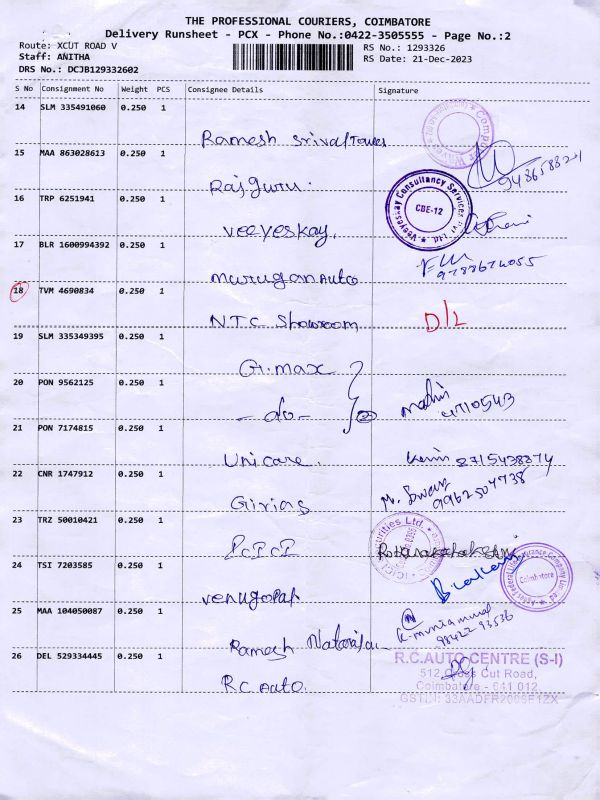 THE PROFESSIONAL COURIERS, COIMBATORE
Delivery Runsheet - PCX - Phone No.:0422-3505555 - Page No.:2
Route: XCUT ROAD V
RS No.: 1293326
Staff: ANITHA
RS Date: 21-Dec-2023
DRS No.: DCJB129332602
S No Consignment No Weight PCS Consignee Details Signature
14 SLM 335491060 0.250 1
Ramesh Srivari Tower
15 MAA 863028613 0.250 1
Rajguru.
16 TRP 6251941 0.250 1
Veeyeskay Consultancy Services Pvt. Ltd.
CBE-12
Veeyeskay.
17 BLR 1600994392 0.250 1
Murugan Auto
18 TVM 4690834 0.250 1
N.T.C Showroom D/L
19 SLM 335349395 0.250 1
G.max
20 PON 9562125 0.250 1
-do-
21 PON 7174815 0.250 1
Unicare.
22 CNR 1747912 0.250 1
Girias
9962504738
23 TRZ 50010421 0.250 1
ICICI
24 TSI 7203585 0.250 1
Venugopal
Coimbatore
25 MAA 104050087 0.250 1
Ramesh Natarajan
K. muniammal
98422 93536
26 DEL 529334445 0.250 1
R.C. Auto.
R.C.AUTO CENTRE (S-I)
512, Cross Cut Road,
Coimbatore - 641 012